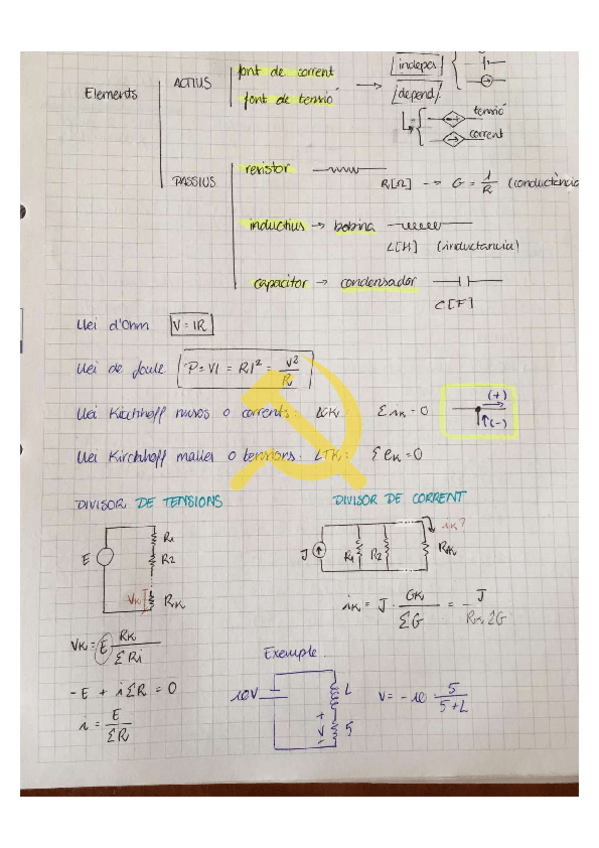 Elements
ACTIUS
font de corrent
font de tensió
[indepe]
[depend]
tensió
corrent
PASSIUS
resistor
R[Ω] --> G = 1/R (conductància
inductius → bobina
L[H] (inductancia)
capacitor → condensador
C[F]
Llei d'Ohm V = IR
Llei de Joule P = VI = RI² = V²/R
Llei Kirchhoff nusos o corrents: LCK: Σ iK = 0
(+)
(-)
Llei Kirchhoff malles o tensions. LTK: Σ eK = 0
DIVISOR DE TENSIONS
DIVISOR DE CORRENT
E
R1
R2
VK
RK
J
R1
R2
iK?
RK
VK = E RK/ΣRi
iK = J · GK/ΣG = J/RK ΣG
-E + iΣR = 0
i = E/ΣR
Exemple
10V
L
+
V
-
5
V = -10 · 5/5+L